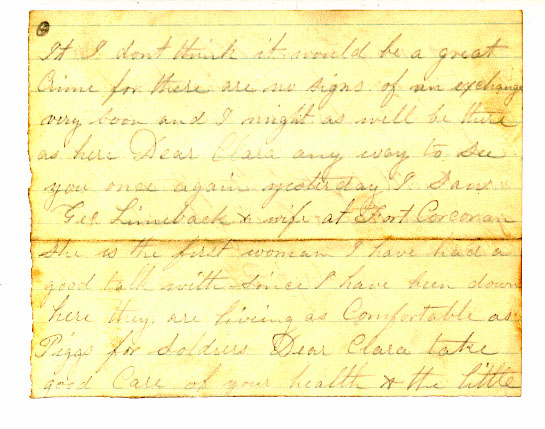 It I dont think it would be a great
Crime for there are no signs of an exchange
very soon and I might as well be there
as here Dear Clara any way to see
you once again yesterday I saw
Geo Limeback & wife at Fort Corcoran
She is the first woman I have had a
good talk with since I have been down
here they are liveing as Comfortable as
Piggs for Soldiers Dear Clara take
good Care of your health & the little